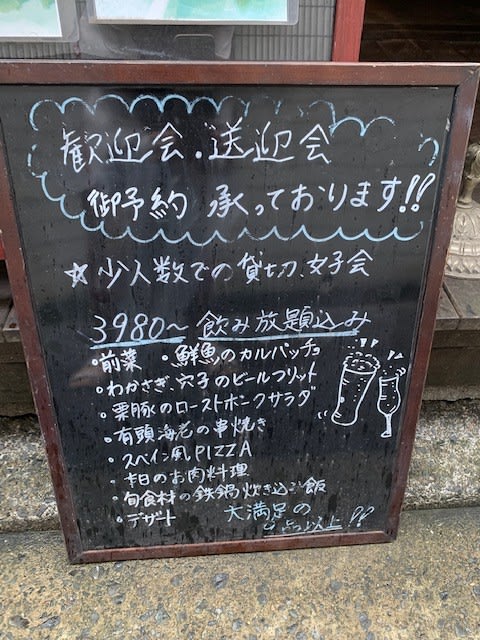 歓迎会.送迎会
御予約 承っております!!
☆少人数での貸切.女子会
3980～ 飲み放題込み
・前菜 ・鮮魚のカルパッチョ
・わかさぎ.穴子のビールフリット
・栗豚のローストポークサラダ
・有頭海老の串焼き
・スペイン風PIZZA
・本日のお肉料理
・旬食材の鉄鍋炊き込ご飯
・デザート
大満足の
点以上!!